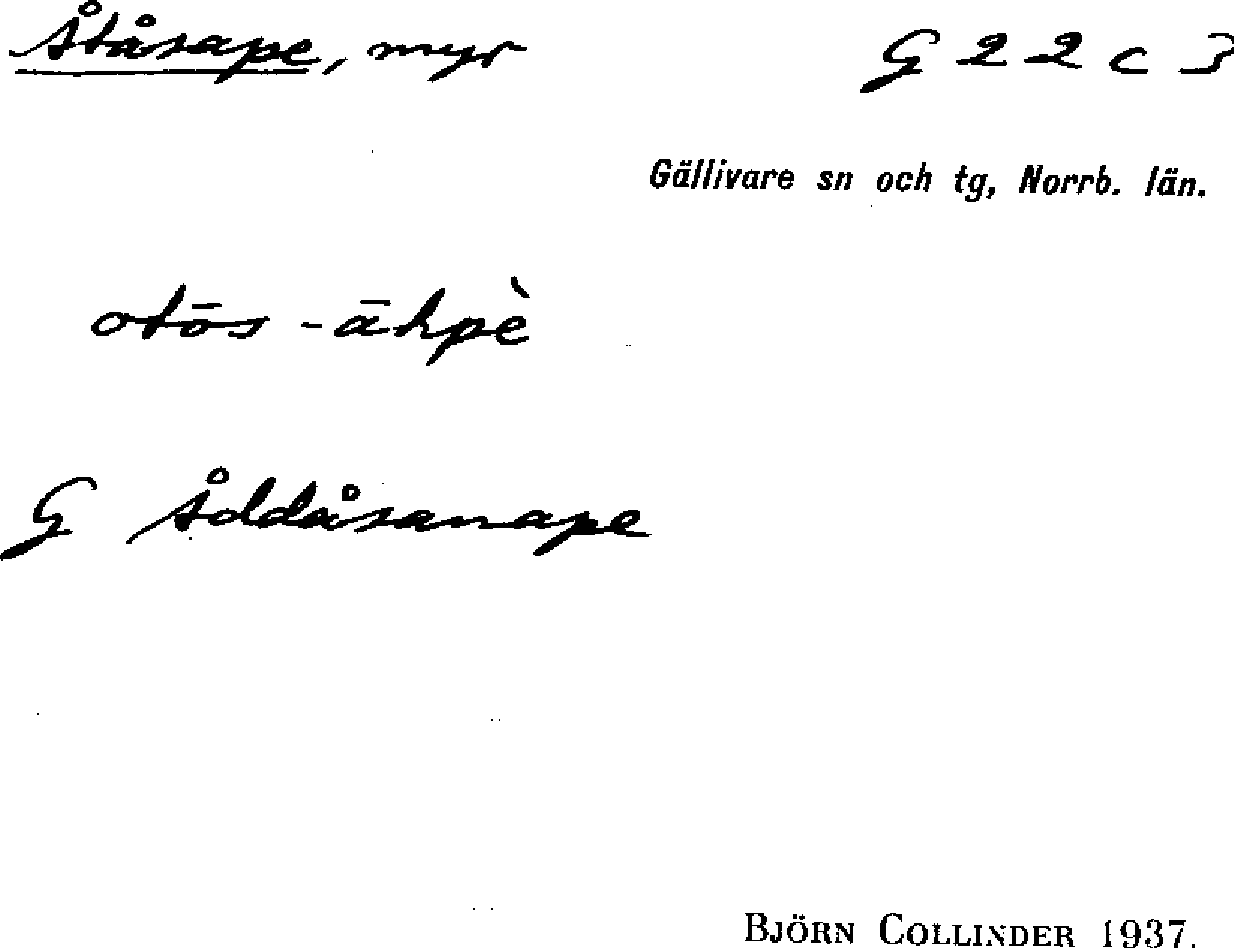 Åtåsape, myr G 22 c 3
Gällivare sn och tg, Norrb. län.
otōs-āhpè
G Åddåsanape
BJÖRN COLLINDER 1937.